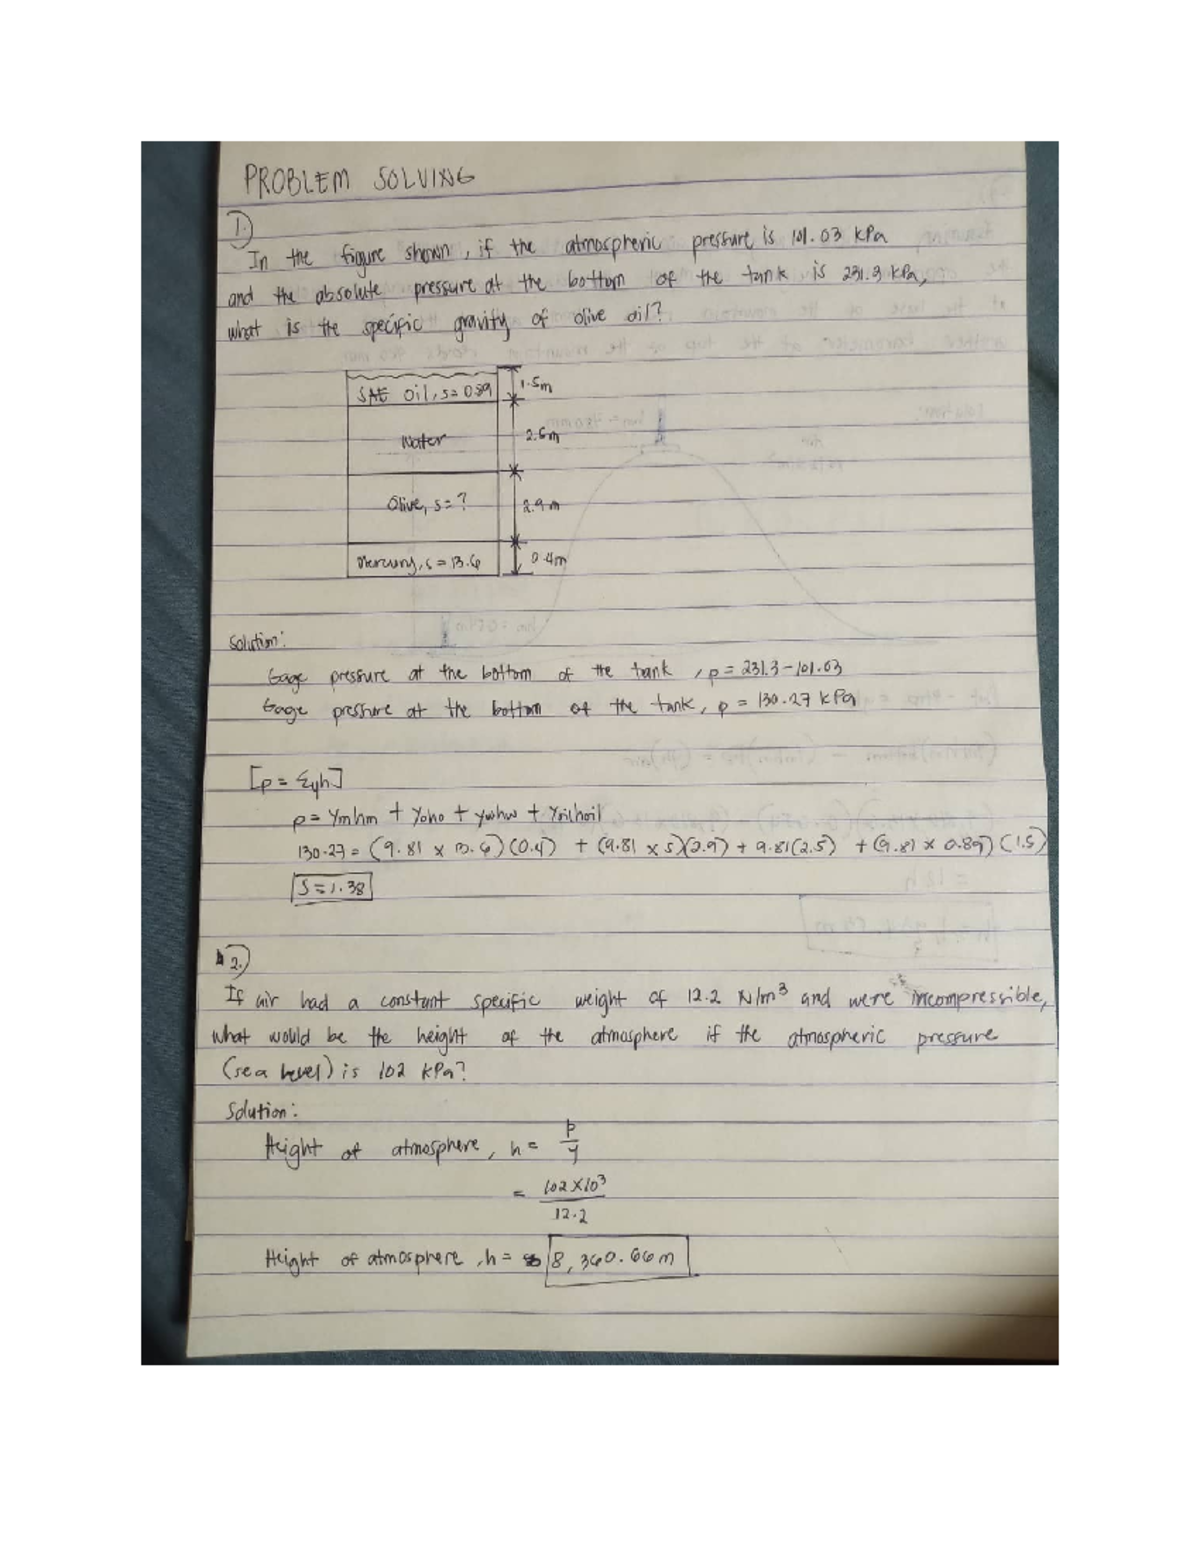 PROBLEM SOLVING
1.
In the figure shown, if the atmospheric pressure is 101.03 kPa
and the absolute pressure at the bottom of the tank is 231.3 kPa,
what is the specific gravity of olive oil?
SAE Oil, s=0.89 1.5m
Water 2.5m
Olive, s=? 2.9m
Mercury, s=13.6 0.4m
Solution:
Gage pressure at the bottom of the tank, p = 231.3-101.03
Gage pressure at the bottom of the tank, p = 130.27 kPa
[p = Σγh]
p = γmhm + γoho + γwhw + γoilhoil
130.27 = (9.81 x 13.6)(0.4) + (9.81 x s)(2.9) + 9.81(2.5) + (9.81 x 0.89)(1.5)
S=1.38
2.
If air had a constant specific weight of 12.2 N/m³ and were incompressible,
what would be the height of the atmosphere if the atmospheric pressure
(sea level) is 102 kPa?
Solution:
Height of atmosphere, h = p/γ
= 102x10³/12.2
Height of atmosphere, h = 8,360.66m